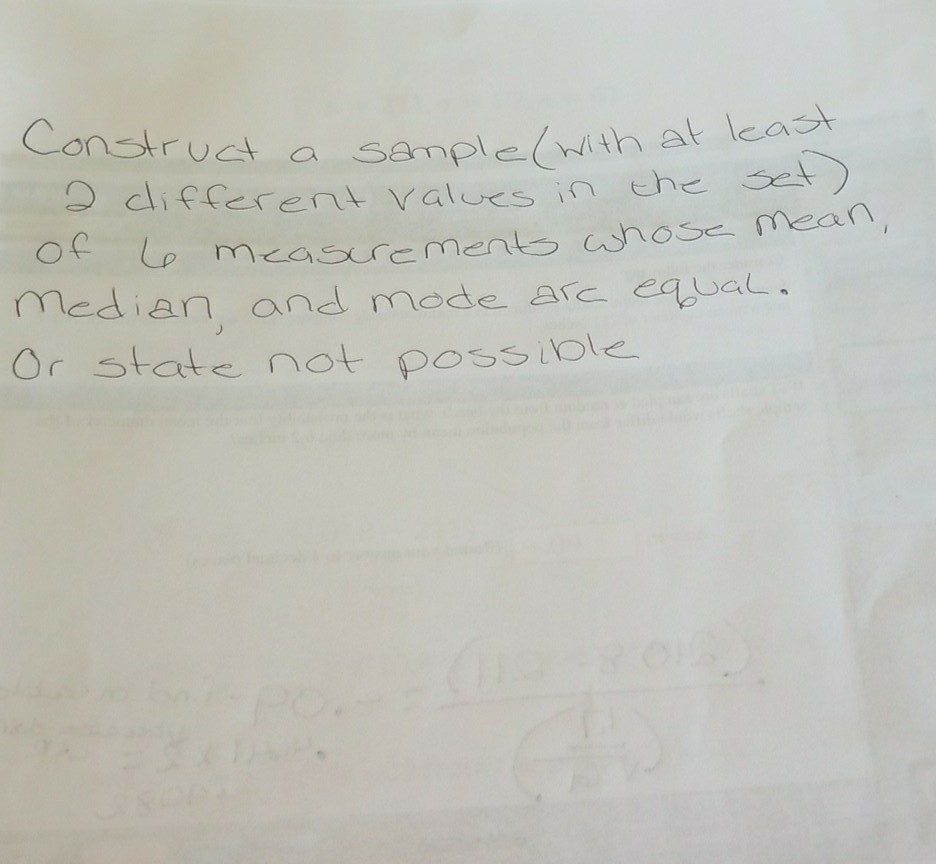 Construct a sample (with at least
2 different values in the set)
of 6 measurements whose mean,
median, and mode are equal.
Or state not possible